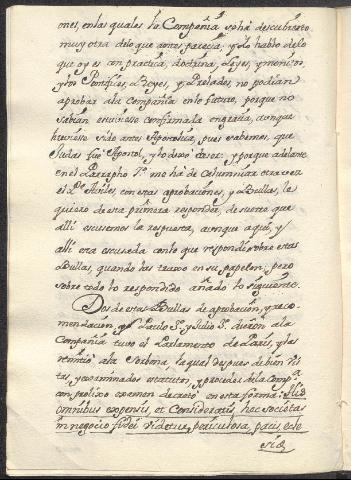 ones, en las quales la Compañia se ha descubierto
muy otra de lo que antes parecia, y solo hablo de lo
que oy es con practica, doctrina, Leyes, y monitos,
y los Pontifices, Reyes, y Prelados no podían
aprobar a la Compañia en lo futuro, porque no
sabian estuviese confirmada en gracia, aunque
huviese sido antes Apostolica, pues sabemos, que
Judas fue Apostol, y lo dexó de ser: y porque adelante
en el Parrapho 7º me há de calumniar otra vez
el Pe. con estas aprobaciones, y Bullas, le
quiero de esta primera responder, de suerte que
allí escusemos la respuesta, aunque aqui, y
allí era escusada con lo que respondí sobre estas
Bullas, quando las traxo en su papelon, pero
sobre todo lo respondido añado lo siguiente.
Dos de estas Bullas de aprobacion, y reco-
mendacion, que Paulo 3º y Julio 3º dieron a la
Compañia tuvo el Parlamento de Paris, y las
remitió a la Sorbona, la qual despues de bien vis-
tas, y examinados estatutos, y procederes de la Compª
con prolixo examen decretó en esta forma: His
omnibus expensis, et consideratis, hec societas
in negocio fidei videtur periculosa, pacis eccle
siæ